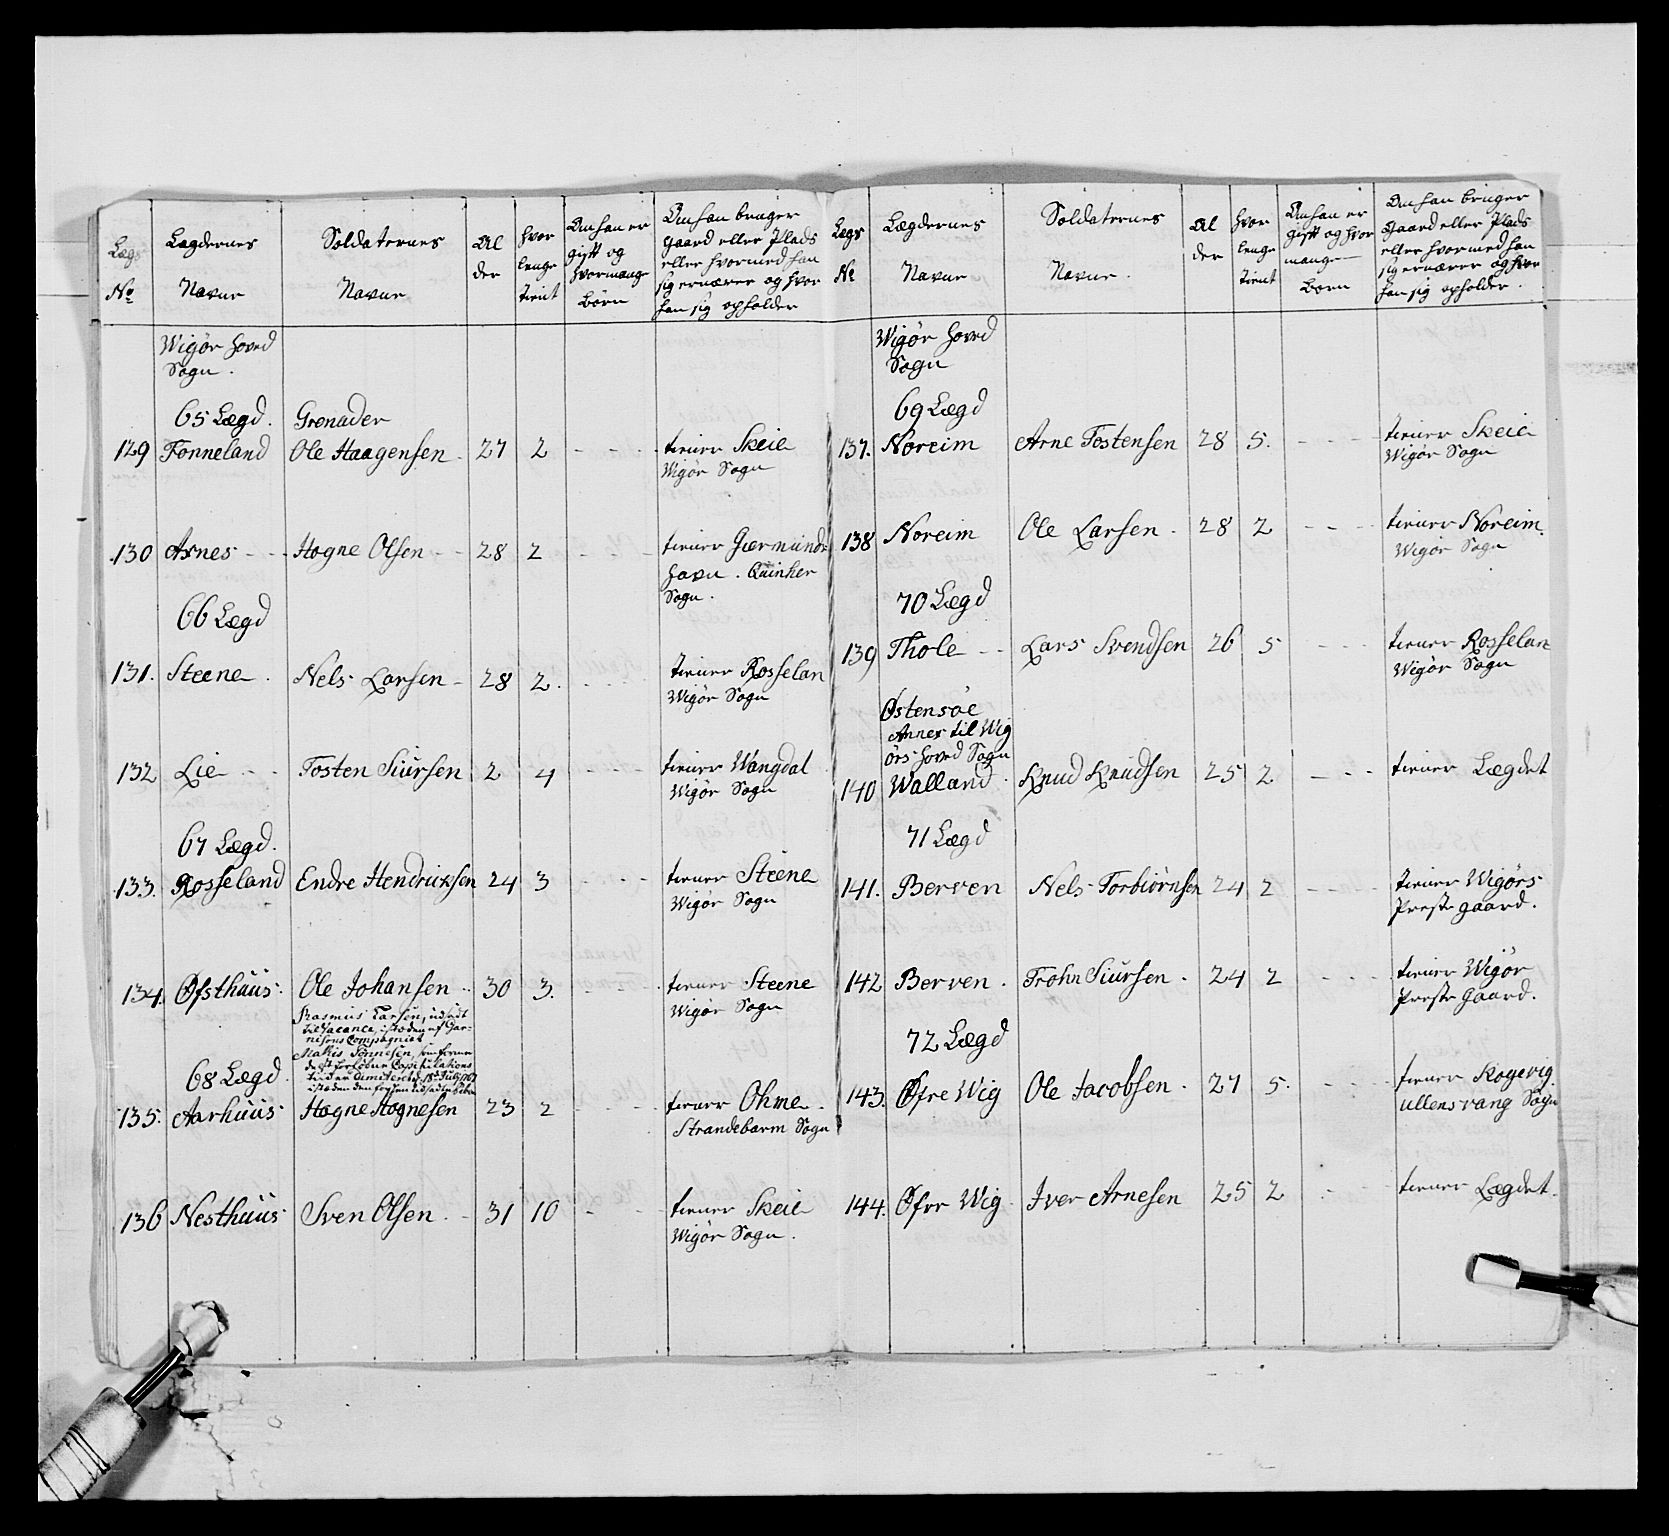 Lægs No
Lægdernes Navne
Soldaternes Navne
Alder
hvor lenge tient
Om han er gift og hvormange Børn
Om han bruger gaard eller Plads eller hvormed han sig ernærer og hvor han sig opholder
Wigør hoved
Sogn.
65 Lægd. Grenader
129 Tonneland Ole Haagensen 27 2 - - - tiener Skeie
Wigør Sogn
130 Axnes - - Hogne Olsen - - 28 2 - - - tiener Giermunds
havn. Quinher
Sogn.
66 Lægd
131. Steene. Nels Larsen - 28 2. - - - tiener Rosselan
Wigør Sogn
132 Lie - - Tosten Siursen 2 4 - - - tiener Wangdal
Wigør Sogn
67 Lægd.
133. Rosseland Endre Hendricksen 24 3 - - - tiener Steene
Wigør Sogn
134. Øfsthuus. Ole Johansen 30 3. - - - tiener Steene
Wigør Sogn
Rasmus Larsen, udsadt
til Vacance, isteden af Gar-
nisons Compagniet
Mathis Tønnesen, som formedelst
forløbne Capitulations
tiid er dimiteret d. 18de July 1767
68 Lægd
135. Aarhuus Hogne Hognesen 23 2 - - - tiener Ohme
Strandebarm Sogn
136 Nesthuus Sven Olsen. - 31 10 - - - tiener Skeie
Wigør Sogn.
Lægs No
Lægdernes Navne
Soldaternes Navne.
Alder
hvor lenge tient
Om han er gift og hvor mange Børn
Om han bruger Gaard eller Plads eller hvormed han sig ernærer og hvor han sig opholder.
Wigør hoved
Sogn
69 Lægd
137. Noreim Arne Tostensen 28 5. - - - tiener Skeie
Wigør Sogn
138 Noreim Ole Larsen. 28 2 - - - tiener Noreim.
Wigør Sogn
70 Lægd
139 Thole - - Lars Svendsen 26 5 - - - tiener Rosselan
Wigør Sogn
Østensøe
Annex til Wig
ørs hoved Sogn
140 Walland. Knud Knudsen 25 2 - - - tiener Lægdet
71 Lægd
141. Berven Nels Torbiørnsen 24 2 - - - tiener Wigørs
Preste gaard.
142 Berven. Trohn Siursen. 24 2 - - - tiener Wigør
Preste Gaard.
72 Lægd
143. Øfre Wig Ole Jacobsen. 27 5. - - - tiener Kogevig
Ullensvang Sogn
144. Øfre Wig Iver Arnesen 25 2 - - - tiener Lægdet.